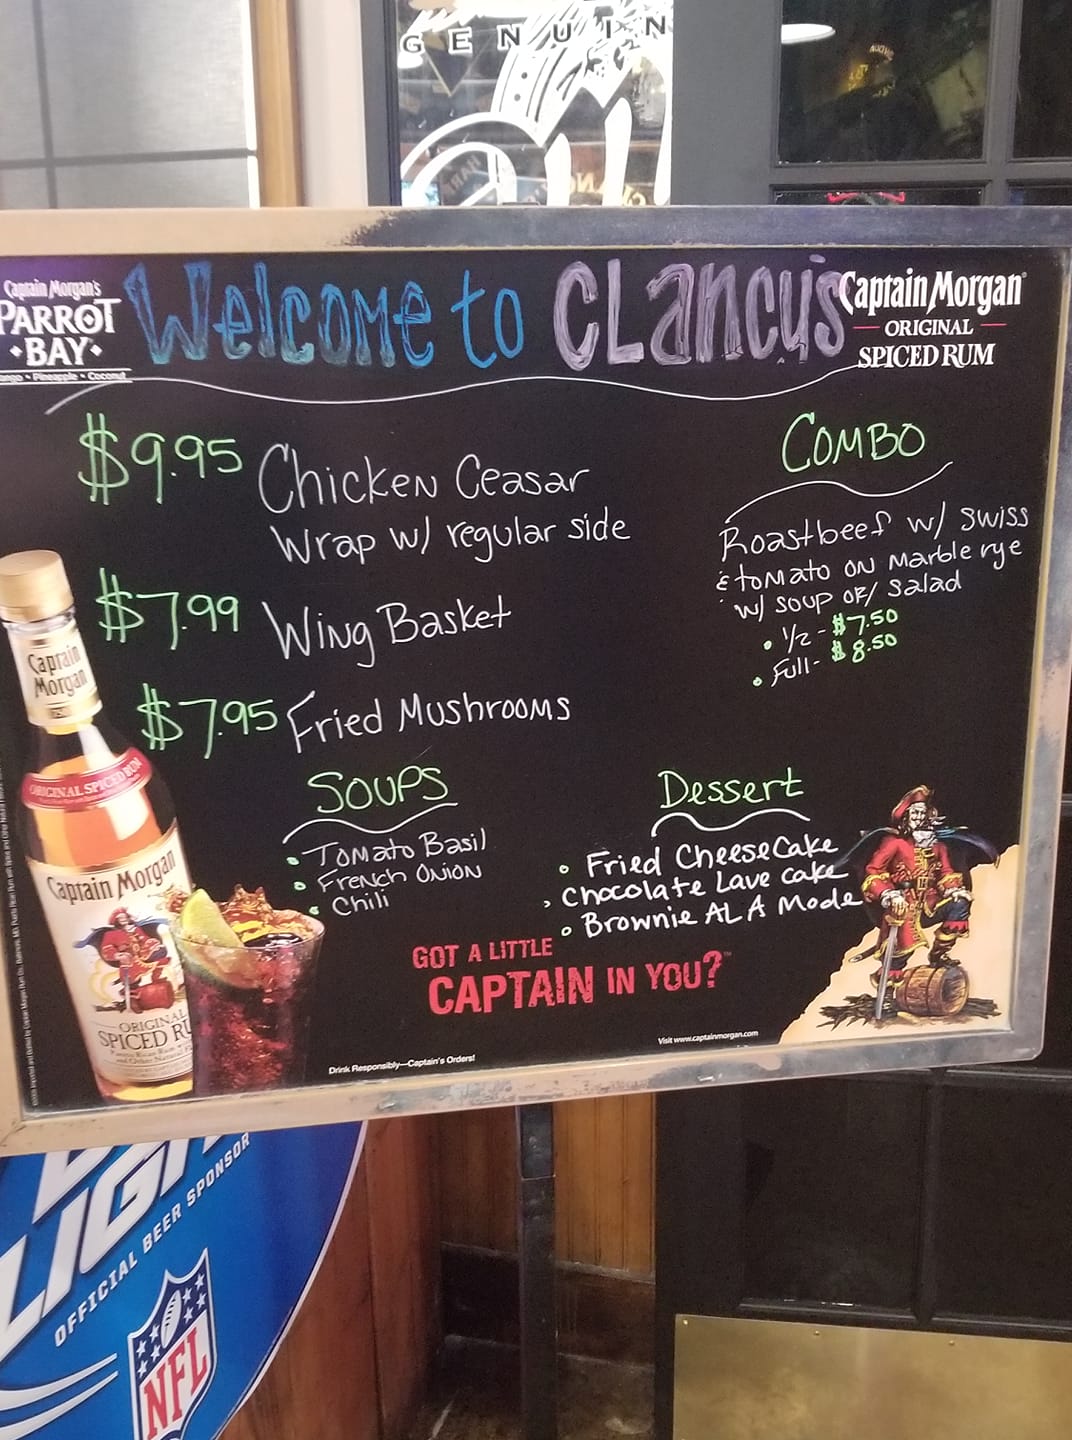 GENUIN
Captain Morgan's
PARROT
BAY
Pineapple • Coconut
Welcome to CLancy's
Captain Morgan
ORIGINAL
SPICED RUM
$9.95 Chicken Ceasar
Wrap w/ regular side
$7.99 Wing Basket
$7.95 Fried Mushrooms
Combo
Roastbeef w/ swiss
& tomato on marble rye
w/ soup or/ salad
• 1/2 - $7.50
• Full - $8.50
Soups
• Tomato Basil
• French Onion
• Chili
Dessert
• Fried CheeseCake
• Chocolate Lave cake
• Brownie AL A Mode
GOT A LITTLE
CAPTAIN IN YOU?
Drink Responsibly—Captain's Orders!
Visit www.captainmorgan.com
Captain
Morgan
ORIGINAL SPICED RUM
Captain Morgan
ORIGINAL
SPICED RU
LIGH
OFFICIAL BEER SPONSOR
NFL